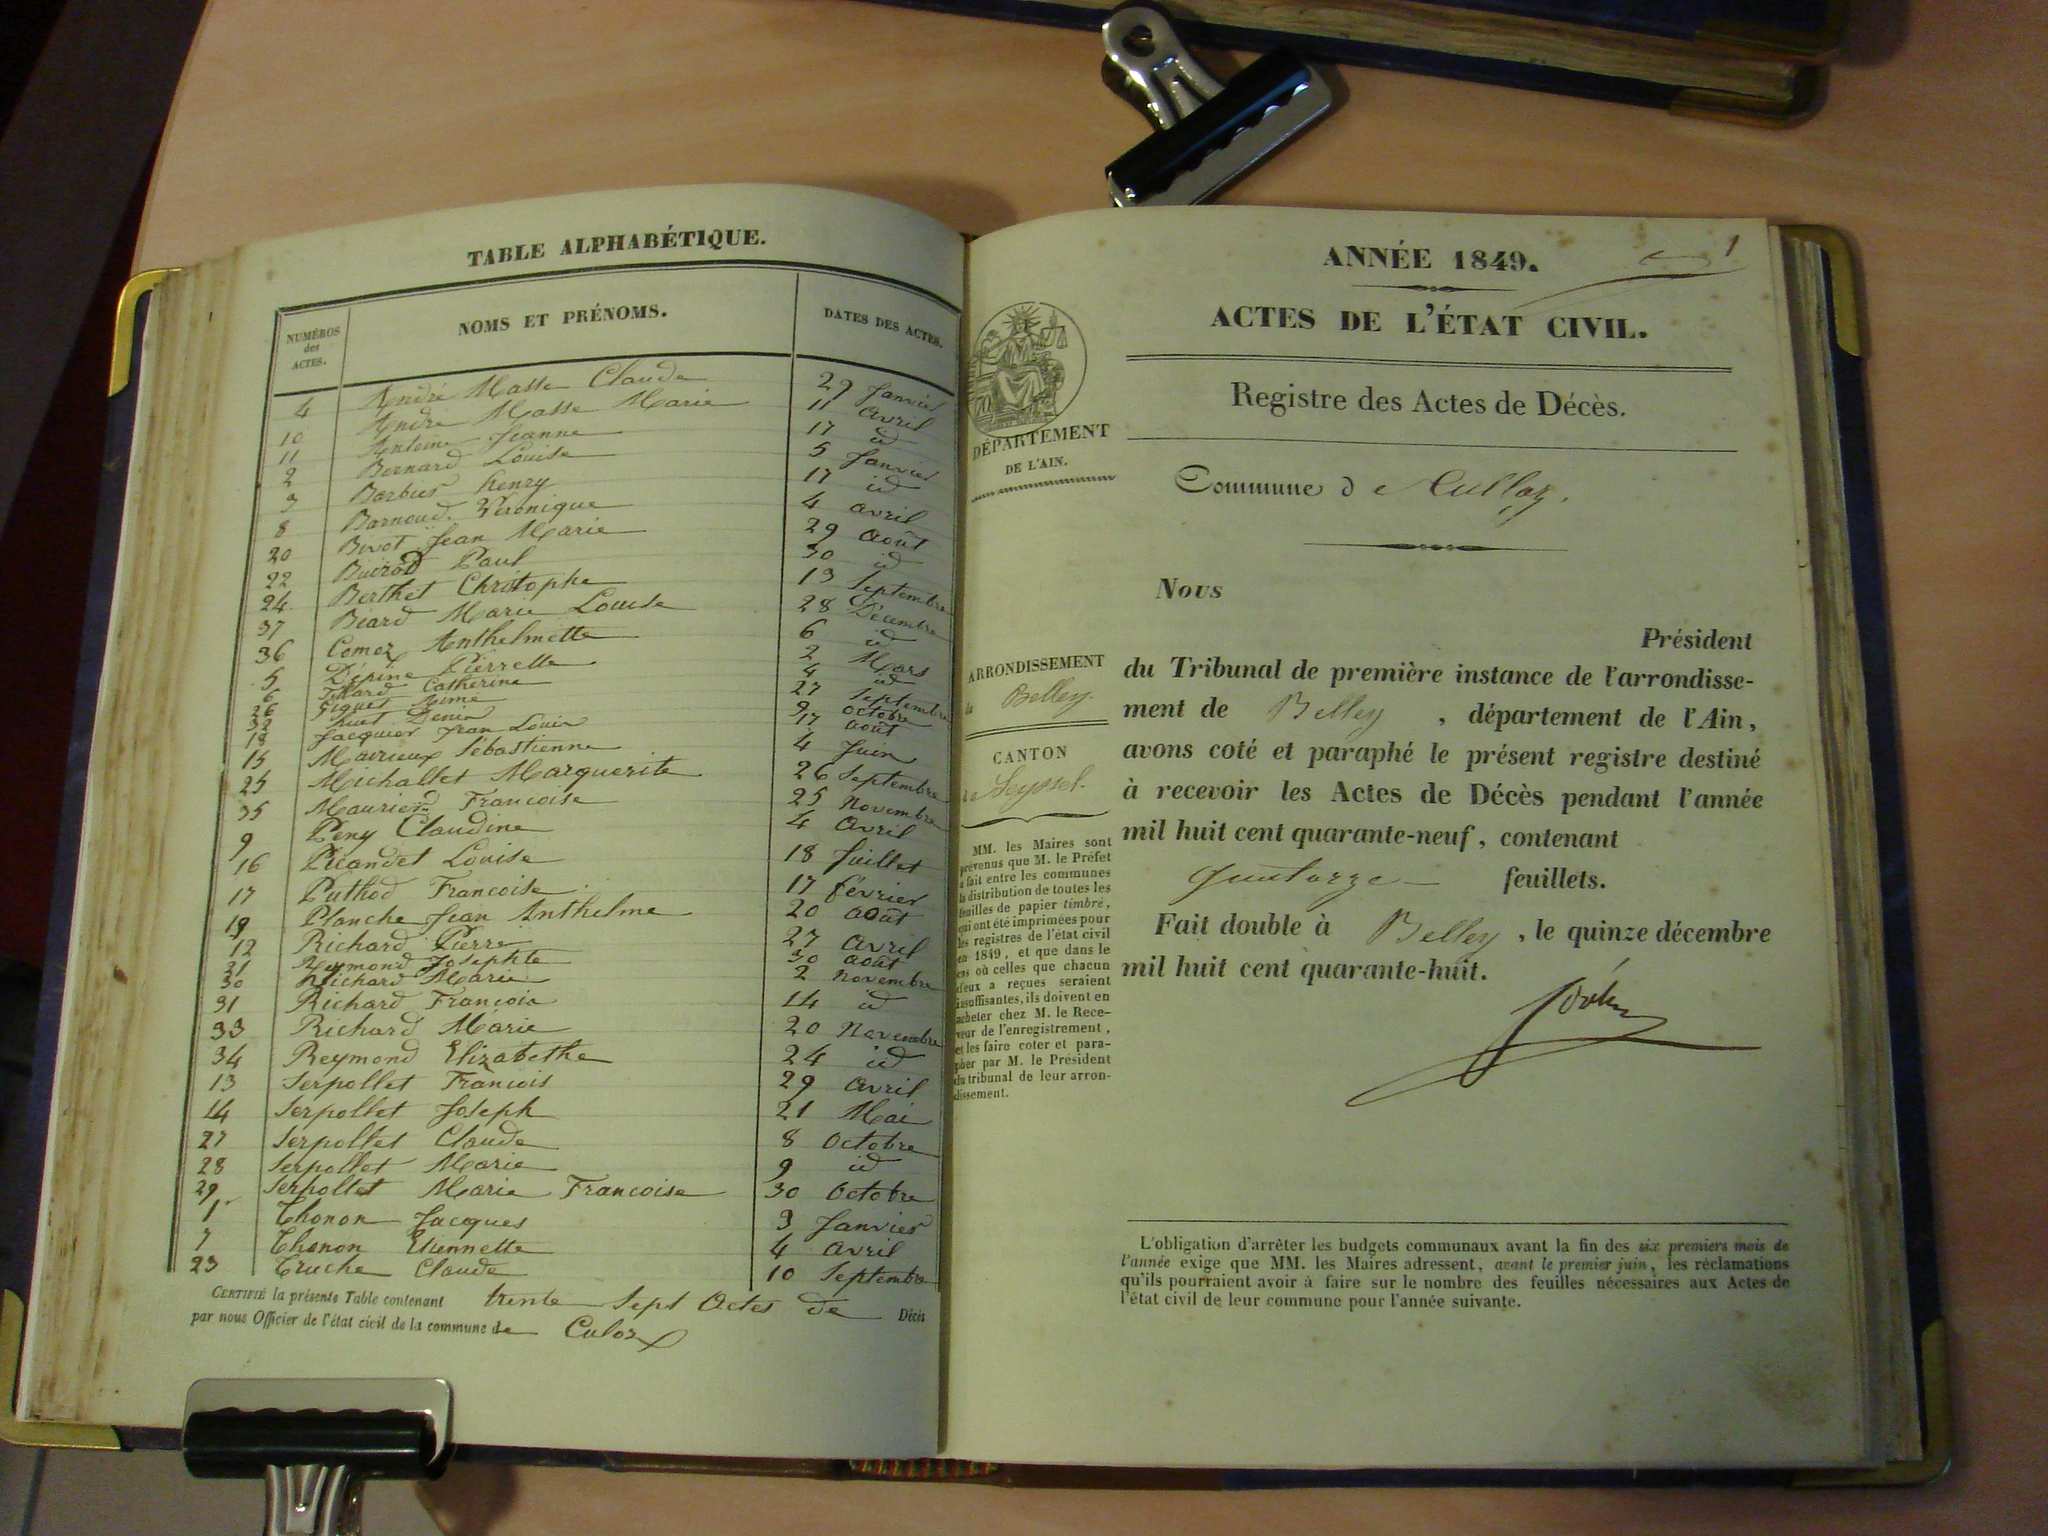 TABLE ALPHABÉTIQUE.
NUMÉROS des ACTES.
NOMS ET PRÉNOMS.
DATES DES ACTES.
4 André Masse Claude 29 Janvier
10 André Masse Marie 11 avril
11 Antoine Jeanne 17 id
2 Bernard Louise 5 Janvier
3 Barbier henry 17 id
8 Barnoud Véronique 4 avril
20 Bivot Jean Marie 29 août
22 Paul 30 id
24 Berthet Christophe 13 Septembre
37 Biard Marie Louise 28 Décembre
36 Comoz Anthelmette 6 id
5 Dépine Pierrette 2 Mars
6 Catherine 4 id
26 Aimé 27 Septembre
32 huet Denis 9 octobre
18 Jacquier Jean Louis 17 août
15 Mairieux Sébastienne 4 Juin
25 Michallet Marguerite 26 Septembre
35 Françoise 25 Novembre
9 Peny Claudine 4 avril
16 Picandet Louise 18 Juillet
17 Puthod Francoise 17 février
19 Planche Jean Anthelme 20 août
12 Richard Pierre 27 avril
21 Reymond Josephte 30 août
30 Richard Marie 2 Novembre
31 Richard François 14 id
33 Richard Marie 20 Novembre
34 Reymond Elizabethe 24 id
13 Serpollet François 29 avril
14 Serpollet Joseph 21 Mai
27 Serpollet Claude 8 Octobre
28 Serpollet Marie 9 id
29 Serpollet Marie Francoise 30 Octobre
1 Thonon Jacques 3 Janvier
7 Thonon Etiennette 4 avril
23 Truche Claude 10 Septembre
CERTIFIÉ la présente Table contenant trente Sept Actes de Décès
par nous Officier de l'état civil de la commune de Culoz
1
ANNÉE 1849.
ACTES DE L'ÉTAT CIVIL.
Registre des Actes de Décès.
DÉPARTEMENT
DE L'AIN.
Commune de Culloz.
ARRONDISSEMENT
de Belley.
CANTON
de Seyssel.
MM. les Maires sont
prévenus que M. le Préfet
a fait entre les communes
la distribution de toutes les
feuilles de papier timbré,
qui ont été imprimées pour
les registres de l'état civil
en 1849, et que dans le
cas où celles que chacun
d'eux a reçues seraient
insuffisantes, ils doivent en
acheter chez M. le Rece-
veur de l'enregistrement,
et les faire coter et para-
pher par M. le Président
du tribunal de leur arron-
dissement.
Nous
Président
du Tribunal de première instance de l'arrondisse-
ment de Belley, département de l'Ain,
avons coté et paraphé le présent registre destiné
à recevoir les Actes de Décès pendant l'année
mil huit cent quarante-neuf, contenant
quatorze feuillets.
Fait double à Belley, le quinze décembre
mil huit cent quarante-huit.
L'obligation d'arrêter les budgets communaux avant la fin des six premiers mois de
l'année exige que MM. les Maires adressent, avant le premier juin, les réclamations
qu'ils pourraient avoir à faire sur le nombre des feuilles nécessaires aux Actes de
l'état civil de leur commune pour l'année suivante.